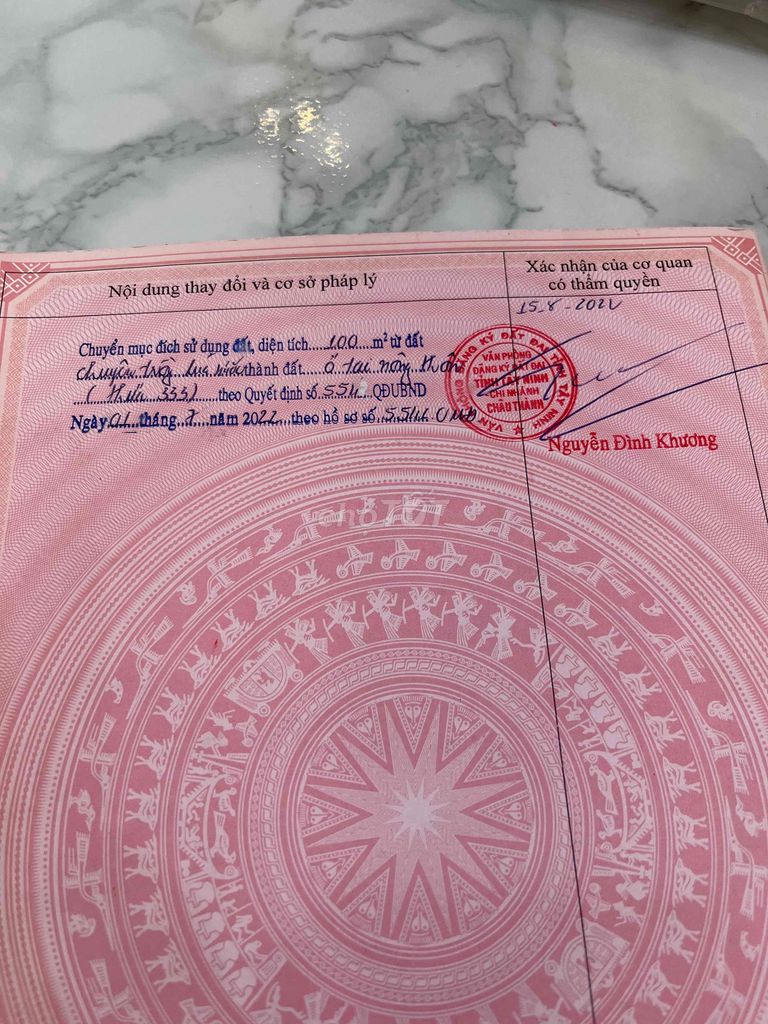 Nội dung thay đổi và cơ sở pháp lý
Xác nhận của cơ quan
có thẩm quyền
15-8-2022
Chuyển mục đích sử dụng đất, diện tích....100....m² từ đất
chuyên trồng lúa nước thành đất...ở tại nông thôn
(thửa 333)....theo Quyết định số 5544 QĐUBND
Ngày 01 tháng 7 năm 2022 theo hồ sơ số
VĂN PHÒNG ĐĂNG KÝ ĐẤT ĐAI TỈNH TÂY NINH
VĂN PHÒNG
ĐĂNG KÝ ĐẤT ĐAI
TỈNH TÂY NINH
CHI NHÁNH
CHÂU THÀNH
Nguyễn Đình Khương
chợTỐT